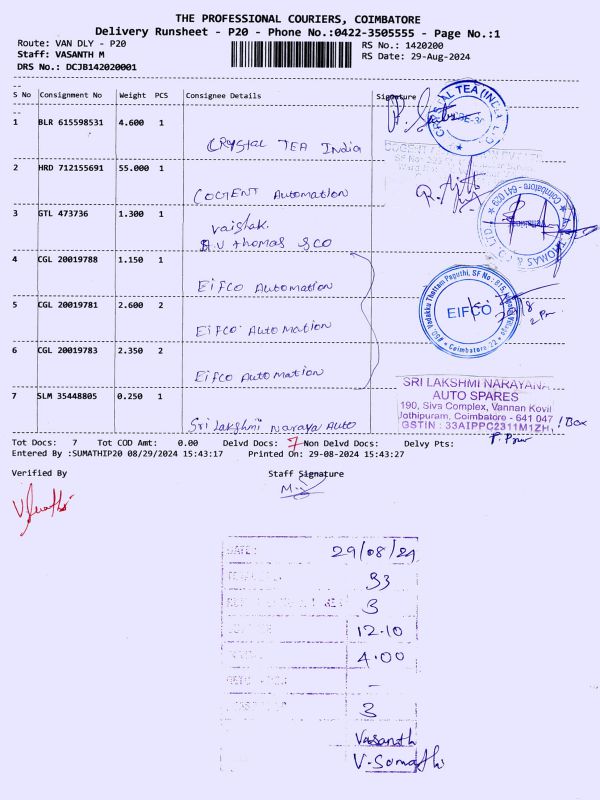 THE PROFESSIONAL COURIERS, COIMBATORE
Delivery Runsheet - P20 - Phone No.:0422-3505555 - Page No.:1
Route: VAN DLY - P20
RS No.: 1420200
Staff: VASANTH M
RS Date: 29-Aug-2024
DRS No.: DCJB142020001
S No Consignment No Weight PCS Consignee Details Signature
1 BLR 615598531 4.600 1
CRYSTAL TEA India
2 HRD 712155691 55.000 1
COGENT Automation
3 GTL 473736 1.300 1
Vaishak.
A.V Thomas & CO
4 CGL 20019788 1.150 1
Eifco Automation
5 CGL 20019781 2.600 2
Eifco Automation
6 CGL 20019783 2.350 2
Eifco Automation
7 SLM 35448805 0.250 1
Sri Lakshmi Naraya Auto
CRYSTAL TEA (INDIA)
EIFCO
Coimbatore - 22
SRI LAKSHMI NARAYANA
AUTO SPARES
190, Siva Complex, Vannan Kovil
Jothipuram, Coimbatore - 641 047
GSTIN : 33AIPPC2311M1ZH
1 Box
Tot Docs: 7 Tot COD Amt: 0.00 Delvd Docs: 7 Non Delvd Docs: Delvy Pts:
Entered By :SUMATHIP20 08/29/2024 15:43:17 Printed On: 29-08-2024 15:43:27
Verified By
Staff Signature
DATE: 29/08/24
33
3
12.10
4.00
-
3
Vasanth
V-Sumathi